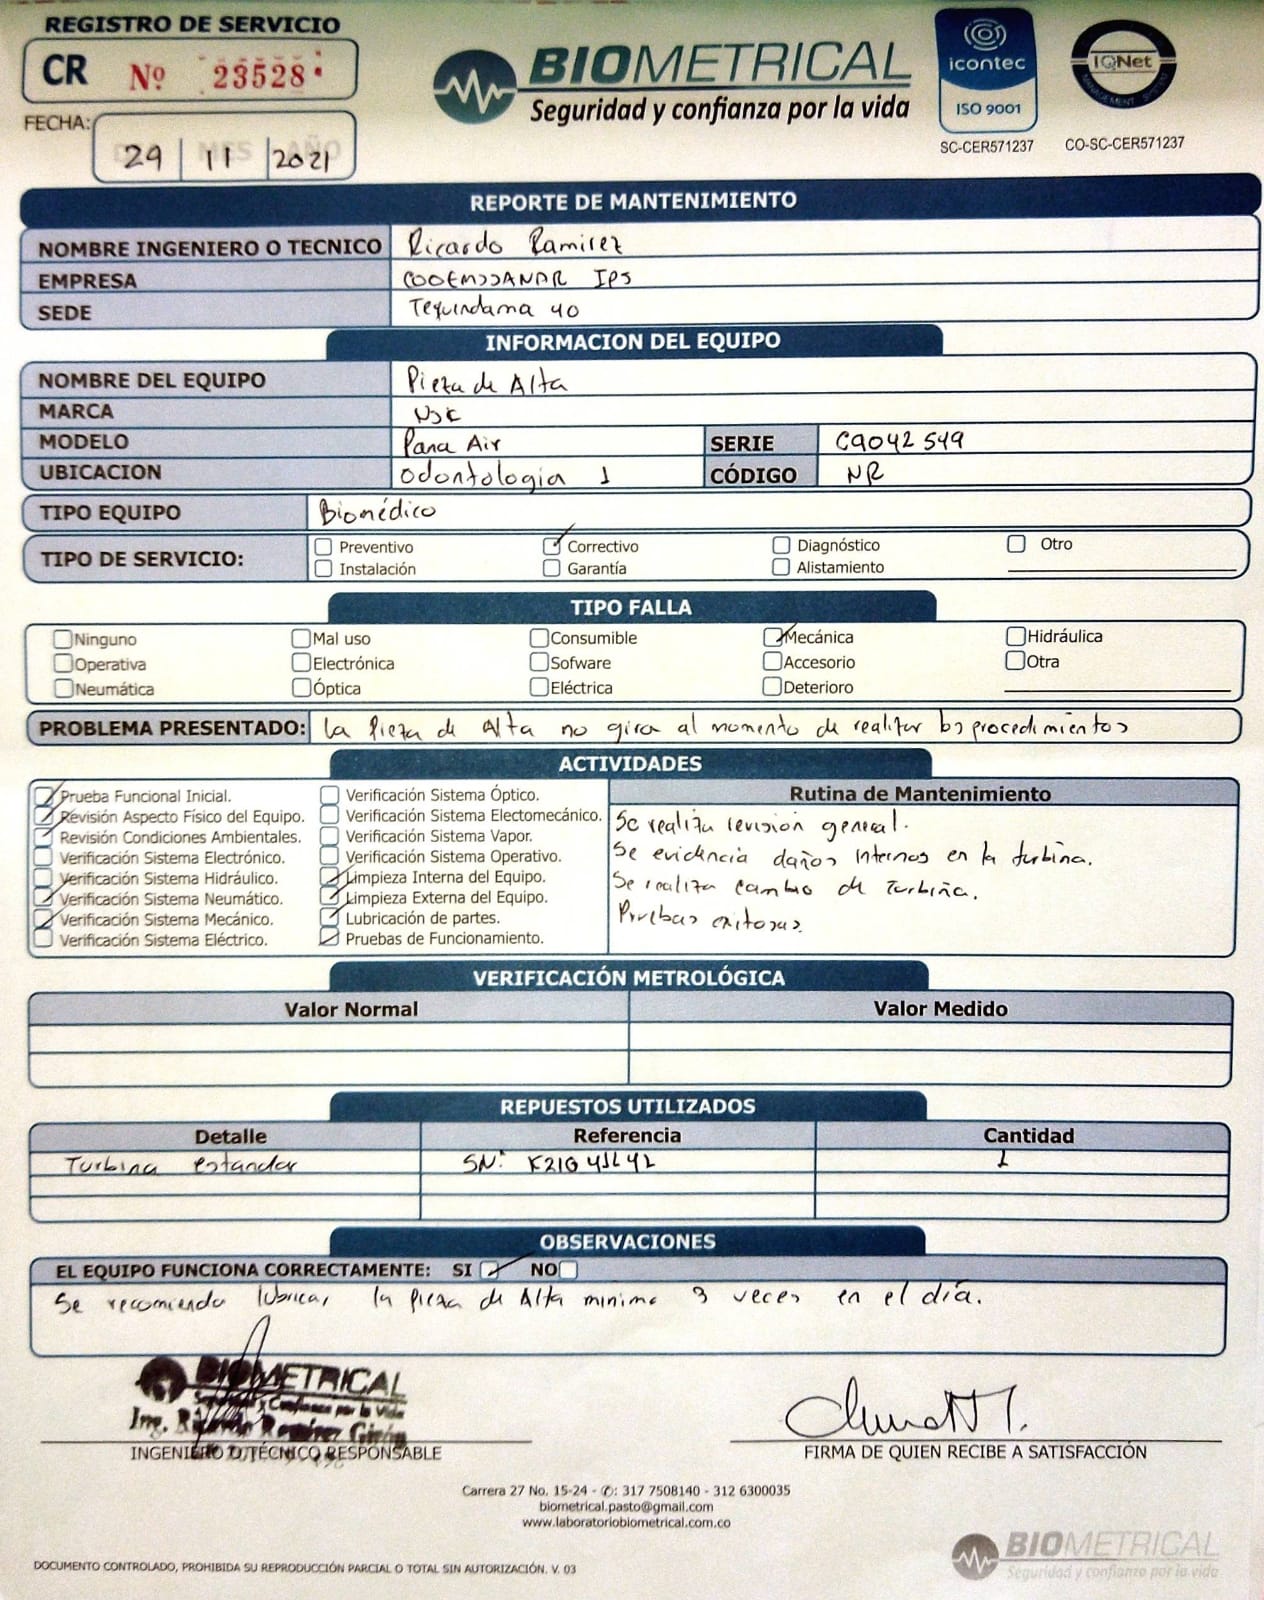 REGISTRO DE SERVICIO
CR Nº 23528
FECHA:
29 11 2021
BIOMETRICAL
Seguridad y confianza por la vida
icontec
ISO 9001
SC-CER571237
IQNet
MANAGEMENT SYSTEM
CO-SC-CER571237
REPORTE DE MANTENIMIENTO
NOMBRE INGENIERO O TECNICO Ricardo Ramirez
EMPRESA COOEMSSANAR IPS
SEDE Tequendama 40
INFORMACION DEL EQUIPO
NOMBRE DEL EQUIPO Pieza de Alta
MARCA NSK
MODELO Pana Air SERIE C9042549
UBICACION Odontologia 1 CÓDIGO NR
TIPO EQUIPO Biomédico
TIPO DE SERVICIO:
Preventivo Correctivo Diagnóstico Otro
Instalación Garantía Alistamiento
TIPO FALLA
Ninguno Mal uso Consumible Mecánica Hidráulica
Operativa Electrónica Sofware Accesorio Otra
Neumática Óptica Eléctrica Deterioro
PROBLEMA PRESENTADO: la Pieza de Alta no gira al momento de realizar los procedimientos
ACTIVIDADES
Prueba Funcional Inicial.
Revisión Aspecto Físico del Equipo.
Revisión Condiciones Ambientales.
Verificación Sistema Electrónico.
Verificación Sistema Hidráulico.
Verificación Sistema Neumático.
Verificación Sistema Mecánico.
Verificación Sistema Eléctrico.
Verificación Sistema Óptico.
Verificación Sistema Electomecánico.
Verificación Sistema Vapor.
Verificación Sistema Operativo.
Limpieza Interna del Equipo.
Limpieza Externa del Equipo.
Lubricación de partes.
Pruebas de Funcionamiento.
Rutina de Mantenimiento
Se realiza revisión general.
Se evidencia daños internos en la turbina.
Se realiza cambio de Turbina.
Pruebas exitosas.
VERIFICACIÓN METROLÓGICA
Valor Normal Valor Medido
REPUESTOS UTILIZADOS
Detalle Referencia Cantidad
Turbina estandar SN: 1
OBSERVACIONES
EL EQUIPO FUNCIONA CORRECTAMENTE: SI NO
Se recomienda lubricar la pieza de Alta minimo 3 veces en el día.
BIOMETRICAL
Seguridad y Confianza por la Vida
Ing. Ricardo Ramirez Girón
INGENIERO O TÉCNICO RESPONSABLE
FIRMA DE QUIEN RECIBE A SATISFACCIÓN
Carrera 27 No. 15-24 - ✆: 317 7508140 - 312 6300035
biometrical.pasto@gmail.com
www.laboratoriobiometrical.com.co
DOCUMENTO CONTROLADO, PROHIBIDA SU REPRODUCCIÓN PARCIAL O TOTAL SIN AUTORIZACIÓN. V. 03
BIOMETRICAL
Seguridad y confianza por la vida